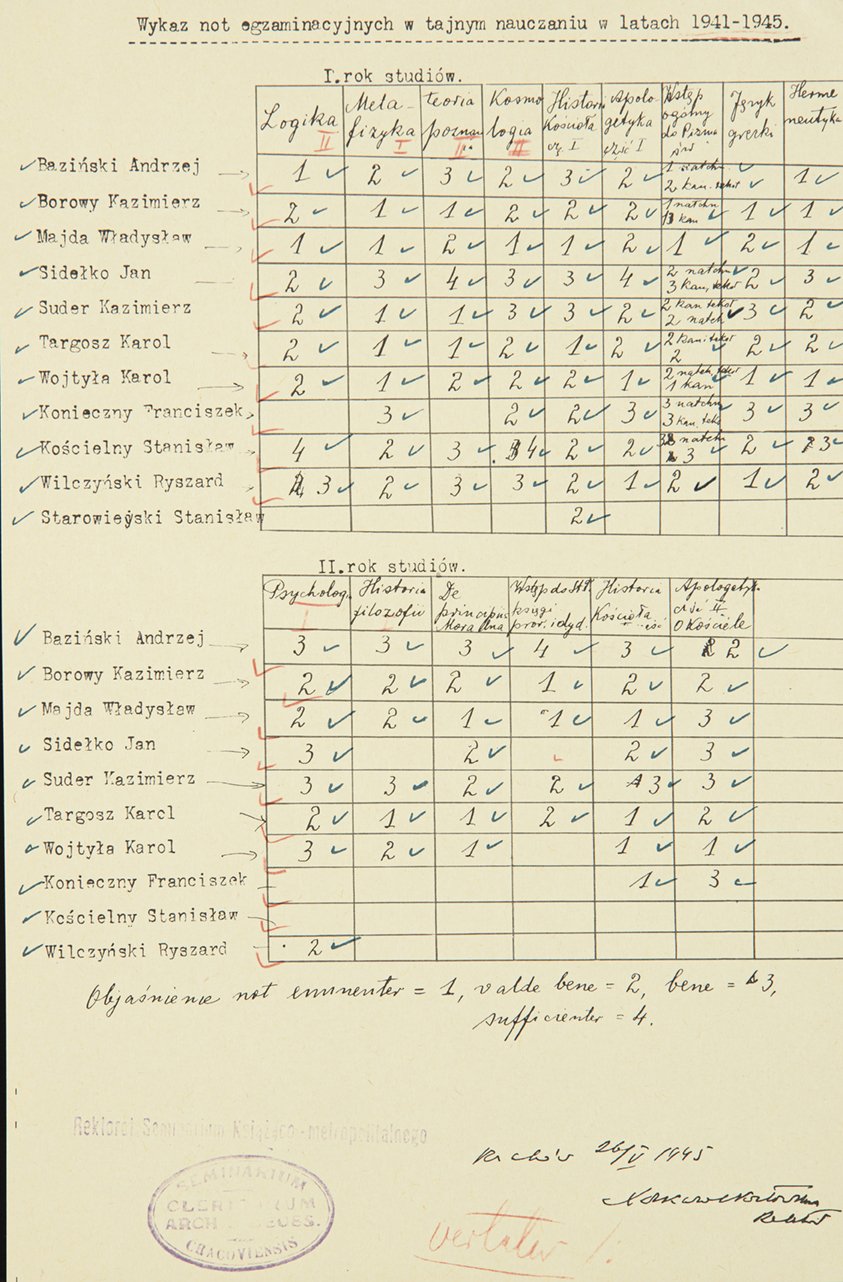 Wykaz not egzaminacyjnych w tajnym nauczaniu w latach 1941-1945.
I.rok studiów.
Logika II Meta-fizyka I teoria poznan II Kosmologia II Histor. Kościoła cz. I Apologetyka część I Wstęp ogólny do Pisma św Język grecki Hermeneutyka
Baziński Andrzej 1 2 3 2 3 2 1 natchn 2 kan. tekst 1
Borowy Kazimierz 2 1 1 2 2 2 1 natchn kan 1 1
Majda Władysław 1 1 2 1 1 2 1 2 1
Sidełko Jan 2 3 4 3 3 4 2 natchn 3 kan, tekst 2 3
Suder Kazimierz 2 1 1 3 3 2 2 kan tekst 2 natch 3 2
Targosz Karol 2 1 1 2 1 2 2 kan i tekst 2 2 2
Wojtyła Karol 2 1 2 2 2 1 2 natch, tekst 1 kan 1 1
Konieczny Franciszek 3 2 2 3 3 natchn 3 kan, teks 3 3
Kościelny Stanisław 4 2 3 4 2 2 natchn 3 2 3
Wilczyński Ryszard 3 2 3 3 2 1 2 1 2
Starowieyski Stanisław 2
II.rok studiów.
Psycholog. I Historia filozofii De principiis Wstęp do St.T. księgi pror. i dyd. Historia Kościoła Apologetyk. część II O Kościele
Baziński Andrzej 3 3 3 4 3 2
Borowy Kazimierz 2 2 2 1 2 2
Majda Władysław 2 2 1 1 1 3
Sidełko Jan 3 2 2 3
Suder Kazimierz 3 3 2 2 3 3
Targosz Karol 2 1 1 2 1 2
Wojtyła Karol 3 2 1 1 1
Konieczny Franciszek 1 3
Kościelny Stanisław
Wilczyński Ryszard 2
Objaśnienie not eminenter = 1, valde bene = 2, bene = 3,
sufficienter = 4.
Rektorat Seminarium Książęco-metropolitalnego
Kraków 26/V 1945
Rektor
SEMINARIUM
CLERICORUM
ARCHIDIOECES.
CRACOVIENSIS